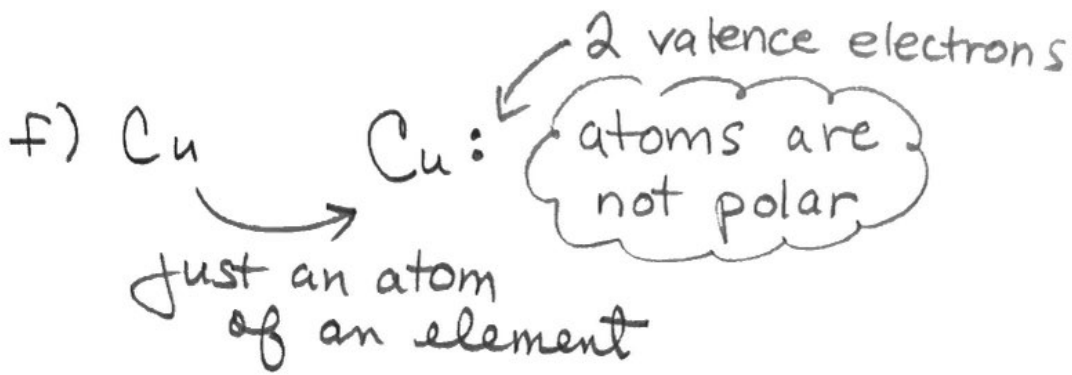 2 valence electrons
f) Cu Cu:
atoms are
not polar
just an atom
of an element